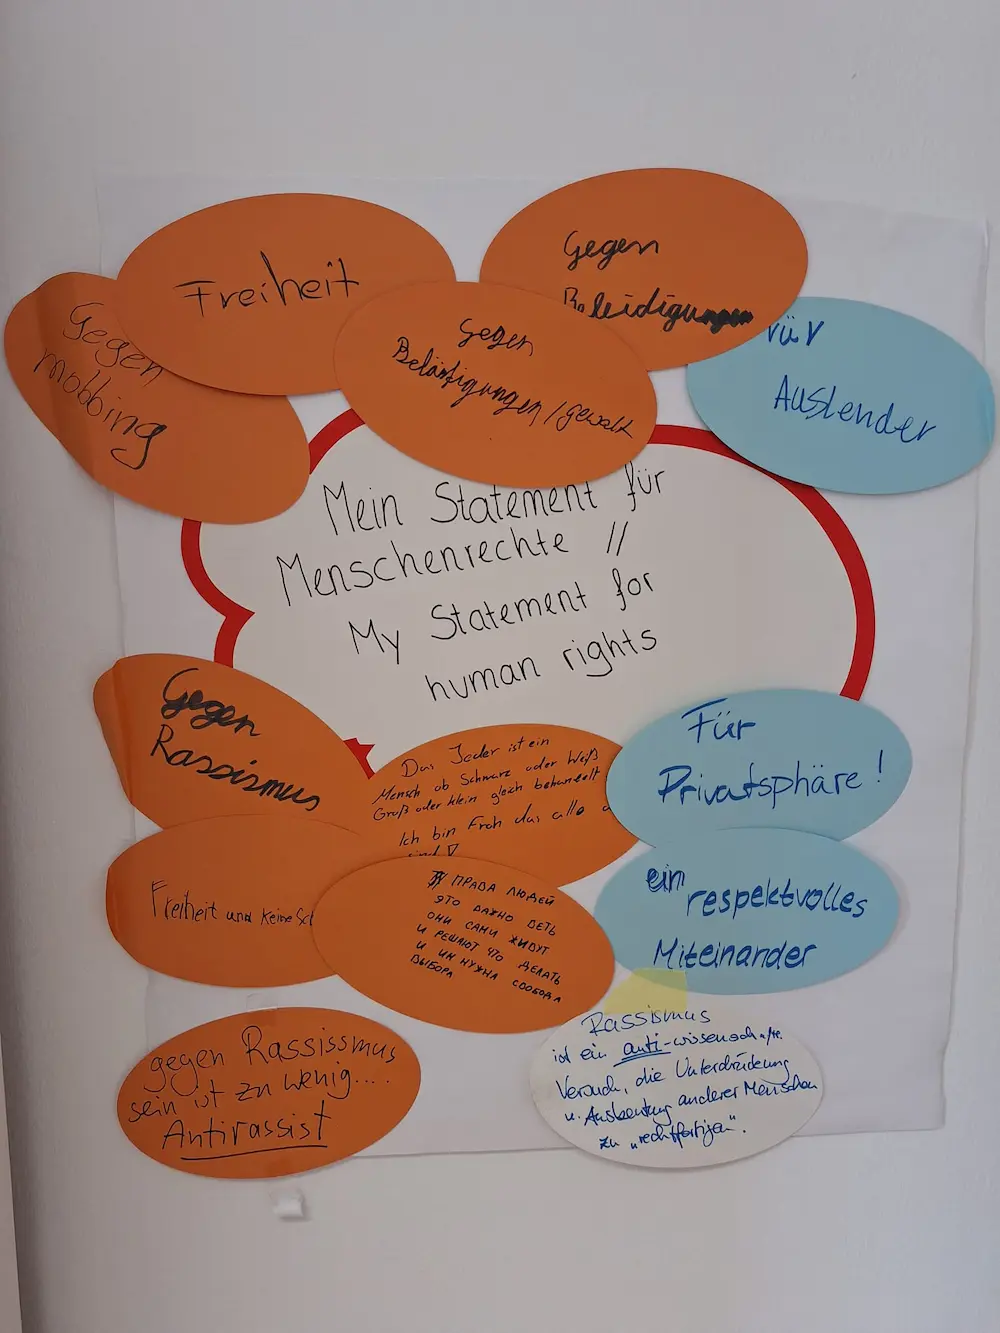 Freiheit
Gegen
Beleidigungen
Gegen
mobbing
Gegen
Belästigungen/gewalt
vür
Auslender
Mein Statement für
Menschenrechte //
My Statement for
human rights
Gegen
Rassismus
Das Jeder ist ein
Mensch ob Schwarz oder Weiß
Groß oder klein gleich behandelt
Ich bin Froh das alle
sind
Für
Privatsphäre!
Freiheit und keine
ПРАВА ЛЮДЕЙ
ЭТО ВАЖНО
ОНИ САМИ ЖИВУТ
И РЕШАЮТ ЧТО ДЕЛАТЬ
И ИМ НУЖНА СВОБОДА
ВЫБОРА
ein
respektvolles
Miteinander
gegen Rassissmus
sein ist zu wenig....
Antirassist
Rassismus
ist ein anti-wissenschaftl.
Versuch, die Unterdrückung
u. Ausbeutung anderer Menschen
zu „rechtfertigen“.